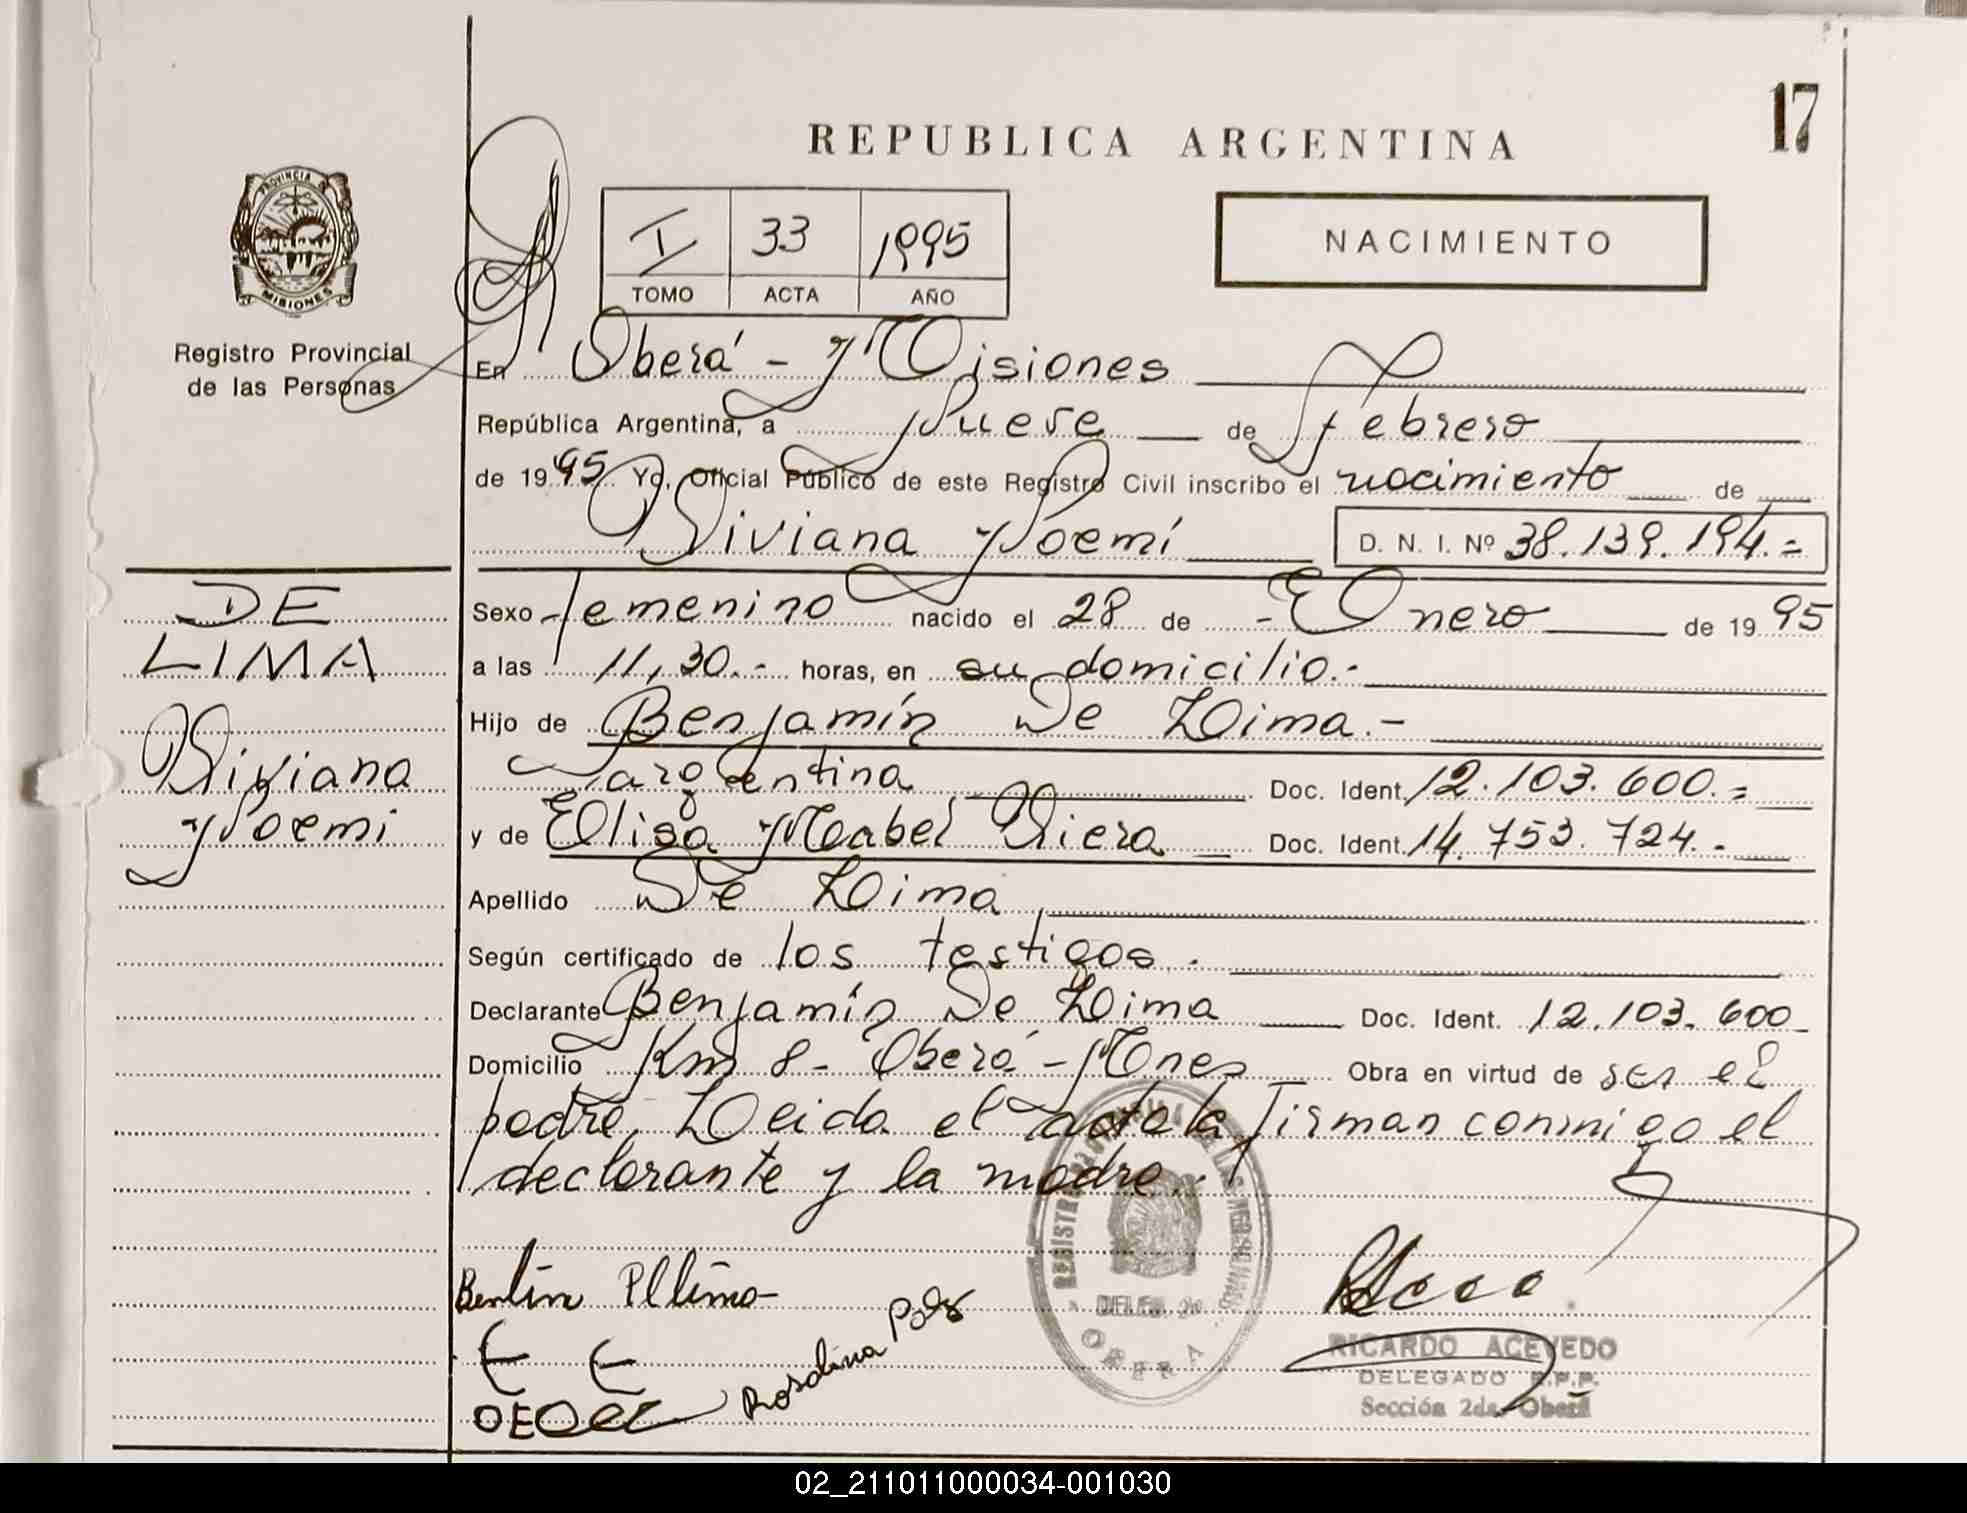 17
REPUBLICA ARGENTINA
PROVINCIA D
MISIONES
I 33 1995
TOMO ACTA AÑO
NACIMIENTO
Registro Provincial
de las Personas
En Oberá - Misiones
República Argentina, a Nueve de Febrero
de 1995 Yo, Oficial Público de este Registro Civil inscribo el nacimiento de
Viviana Noemí D. N. I. Nº 38.139.194.=
DE
LIMA
Viviana
Noemi
Sexo femenino nacido el 28 de - Enero de 1995
a las 11,30.- horas, en su domicilio.-
Hijo de Benjamín De Lima.-
argentina Doc. Ident. 12.103.600.=
y de Elisa Mabel Viera Doc. Ident. 14.753.724.-
Apellido De Lima
Según certificado de los testigos.
Declarante Benjamín De Lima Doc. Ident. 12.103.600
Domicilio Km 8 - Oberá - Mnes Obra en virtud de ser el
padre. Leida el acta la firman conmigo el
declarante y la madre.
Rosalina
REGISTRO DE LAS PERSONAS
OBERA
RICARDO ACEVEDO
DELEGADO R.P.P.
Sección 2da. Oberá
02_211011000034-001030